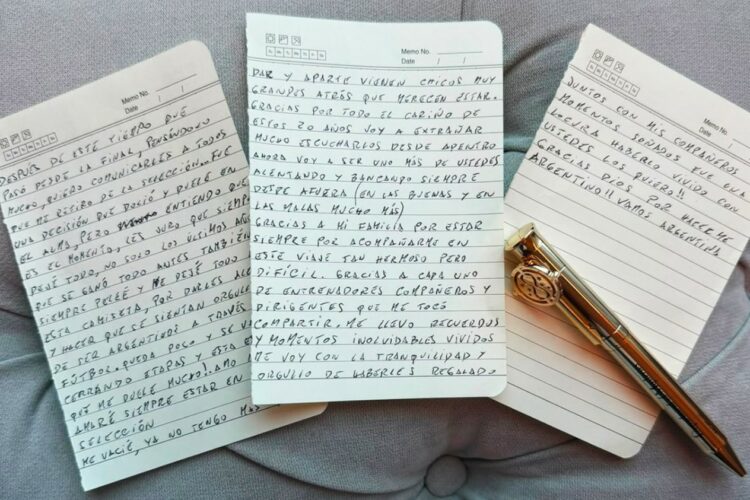 Memo No.
Date / /
DESPUÉS DE ESTE TIEMPO QUE
PASÓ DESDE LA FINAL, PENSÁNDOLO
MUCHO, QUIERO COMUNICARLES A TODOS
QUE ME RETIRO DE LA SELECCIÓN. FUE
UNA DECISIÓN QUE DOLIÓ Y DUELE EN
EL ALMA, PERO ENTIENDO QUE
ES EL MOMENTO, LES JURO QUE SIEMPRE
DEJÉ TODO, NO SOLO LOS ÚLTIMOS AÑOS
QUE SE GANÓ TODO ANTES TAMBIÉN
SIEMPRE PELEÉ Y ME DEJÉ TODO
ESTA CAMISETA, POR DARLES ALE
Y HACER QUE SE SIENTAN ORGULLO
DE SER ARGENTINOS A TRAVÉS
FÚTBOL. QUEDA POCO Y SE VA
CERRANDO ETAPAS Y ESTA ES
QUE ME DUELE MUCHO! AMO
AMARÉ SIEMPRE ESTAR EN
SELECCIÓN
ME VACIÉ, YA NO TENGO MÁS
Memo No.
Date / /
DAR Y APARTE VIENEN CHICOS MUY
GRANDES ATRÁS QUE MERECEN ESTAR.
GRACIAS POR TODO EL CARIÑO DE
ESTOS 20 AÑOS VOY A EXTRAÑAR
MUCHO ESCUCHARLOS DESDE ADENTRO
AHORA VOY A SER UNO MÁS DE USTEDES
ALENTANDO Y BANCANDO SIEMPRE
DESDE AFUERA (EN LAS BUENAS Y EN
LAS MALAS MUCHO MÁS)
GRACIAS A MI FAMILIA POR ESTAR
SIEMPRE POR ACOMPAÑARME EN
ESTE VIAJE TAN HERMOSO PERO
DIFÍCIL. GRACIAS A CADA UNO
DE ENTRENADORES COMPAÑEROS Y
DIRIGENTES QUE ME TOCÓ
COMPARTIR, ME LLEVO RECUERDOS
Y MOMENTOS INOLVIDABLES VIVIDOS
ME VOY CON LA TRANQUILIDAD Y
ORGULLO DE HABERLES REGALADO
Memo No.
Date /
JUNTOS CON MIS COMPAÑEROS
MOMENTOS SOÑADOS FUE UNA
LOCURA HABERLO VIVIDO CON
USTEDES LOS QUIERO!!
GRACIAS DIOS POR HACERME
ARGENTINO!! VAMOS ARGENTINA